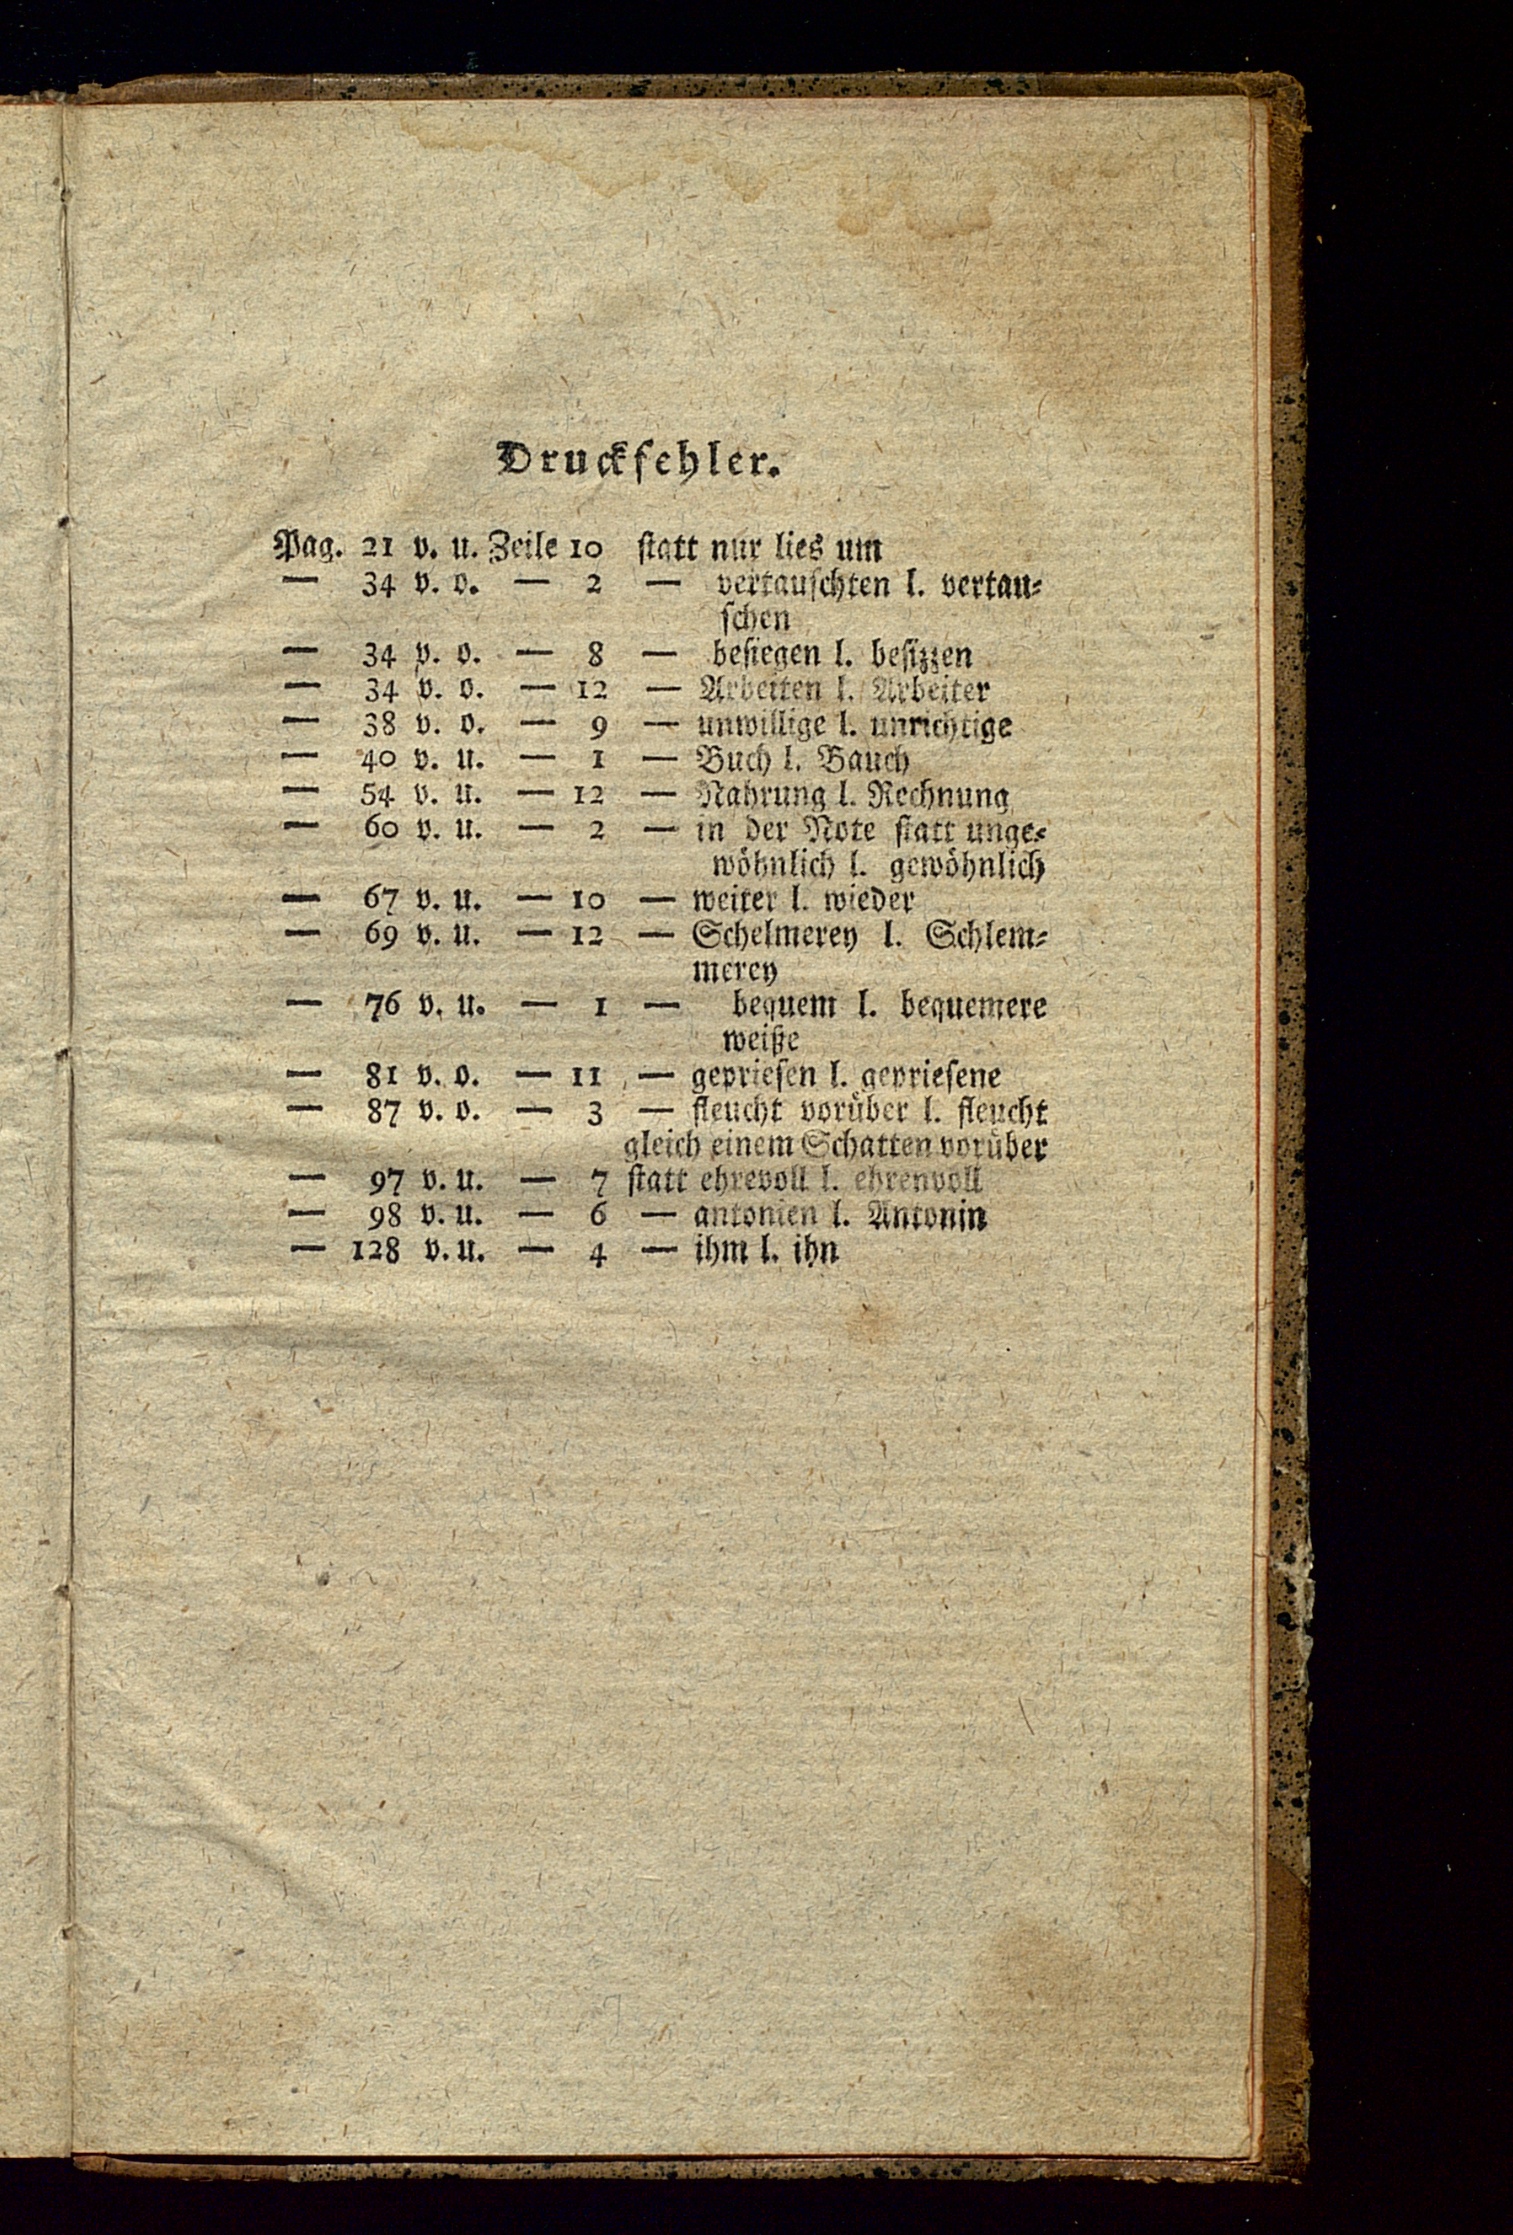 Druckfehler.
Pag. 21 v. u. Zeile 10 statt nur lies um
— 34 v. o. — 2 — vertauschten l. vertau-
schen
— 34 v. o. — 8 — besiegen l. besizzen
— 34 v. o. — 12 — Arbeiten l. Arbeiter
— 38 v. o. — 9 — unwillige l. unrichtige
— 40 v. u. — 1 — Buch l. Bauch
— 54 v. u. — 12 — Nahrung l. Rechnung
— 60 v. u. — 2 — in der Note statt unge-
wöhnlich l. gewöhnlich
— 67 v. u. — 10 — weiter l. wieder
— 69 v. u. — 12 — Schelmerey l. Schlem-
merey
— 76 v. u. — 1 — bequem l. bequemere
weiße
— 81 v. o. — 11 — gepriesen l. gepriesene
— 87 v. o. — 3 — fleucht vorüber l. fleucht
gleich einem Schatten vorüber
— 97 v. u. — 7 statt ehrevoll l. ehrenvoll
— 98 v. u. — 6 — antonien l. Antonin
— 128 v. u. — 4 — ihm l. ihn